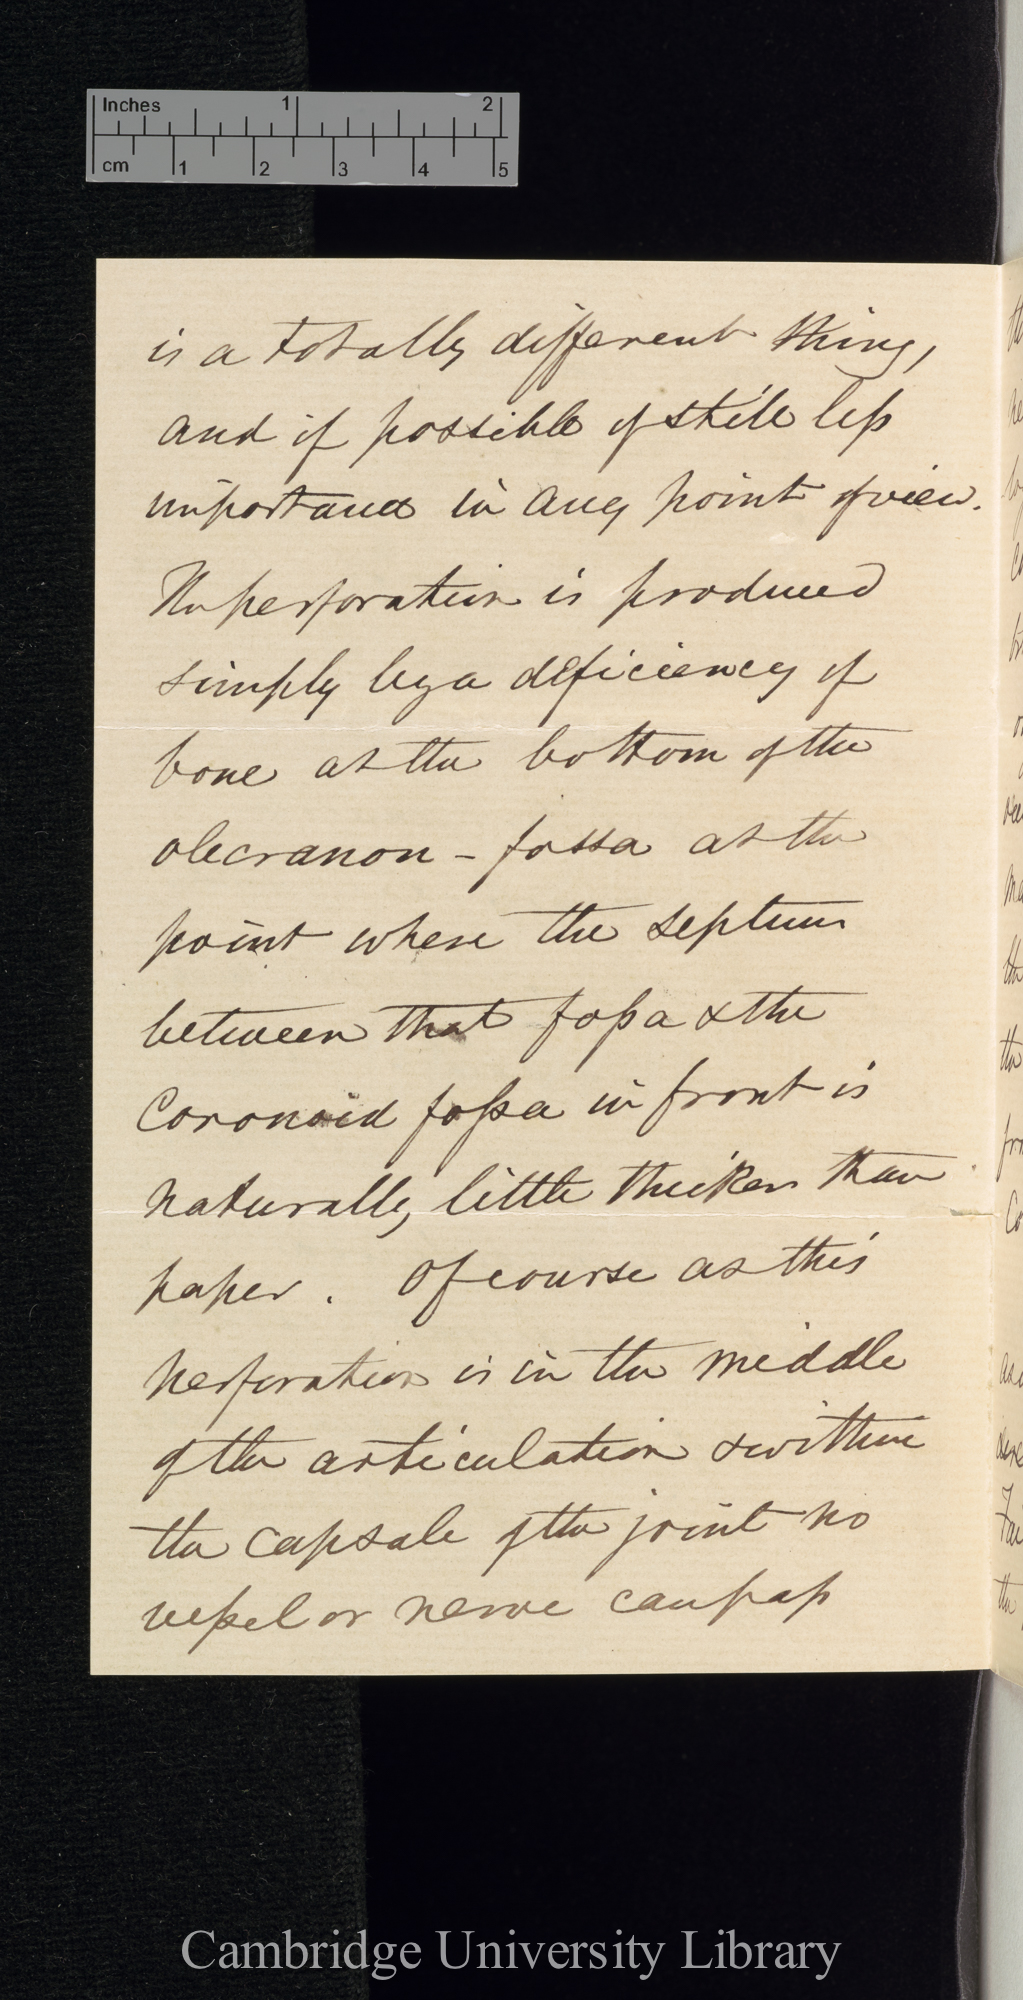 Inches 1 2
cm 1 2 3 4 5
is a totally different thing,
and if possible of still less
importance in any point of view.
The perforation is produced
simply by a deficiency of
bone at the bottom of the
olecranon - fossa at the
point where the septum
between that fossa & the
Coronoid fossa in front is
naturally little thicker than
paper. Of course as this
perforation is in the middle
of the articulation & within
the capsule of the joint no
vessel or nerve can pass
Cambridge University Library